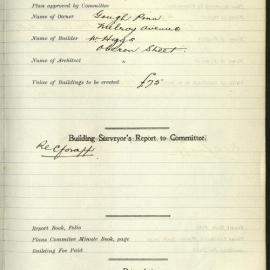 Plan approved by Committee
Name of Owner Gough Penn
Milroy Avenue
Name of Builder W. Higgs
Oberon Street.
Name of Architect "
Value of Buildings to be erected £75
Building Surveyor's Report to Committee.
Report Book, Folio
Plans Committee Minute Book, page
Building Fee Paid